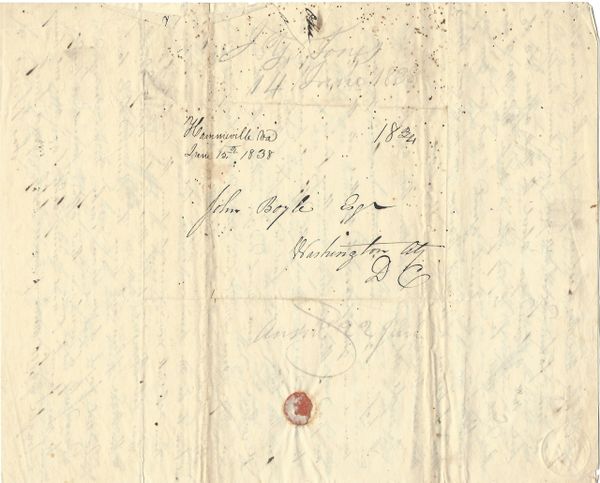 14 June 183
Harmieville Va
June 15th 1838
18 3/4
John Boyle Esqr
Washington City
D C
Answd 22 June